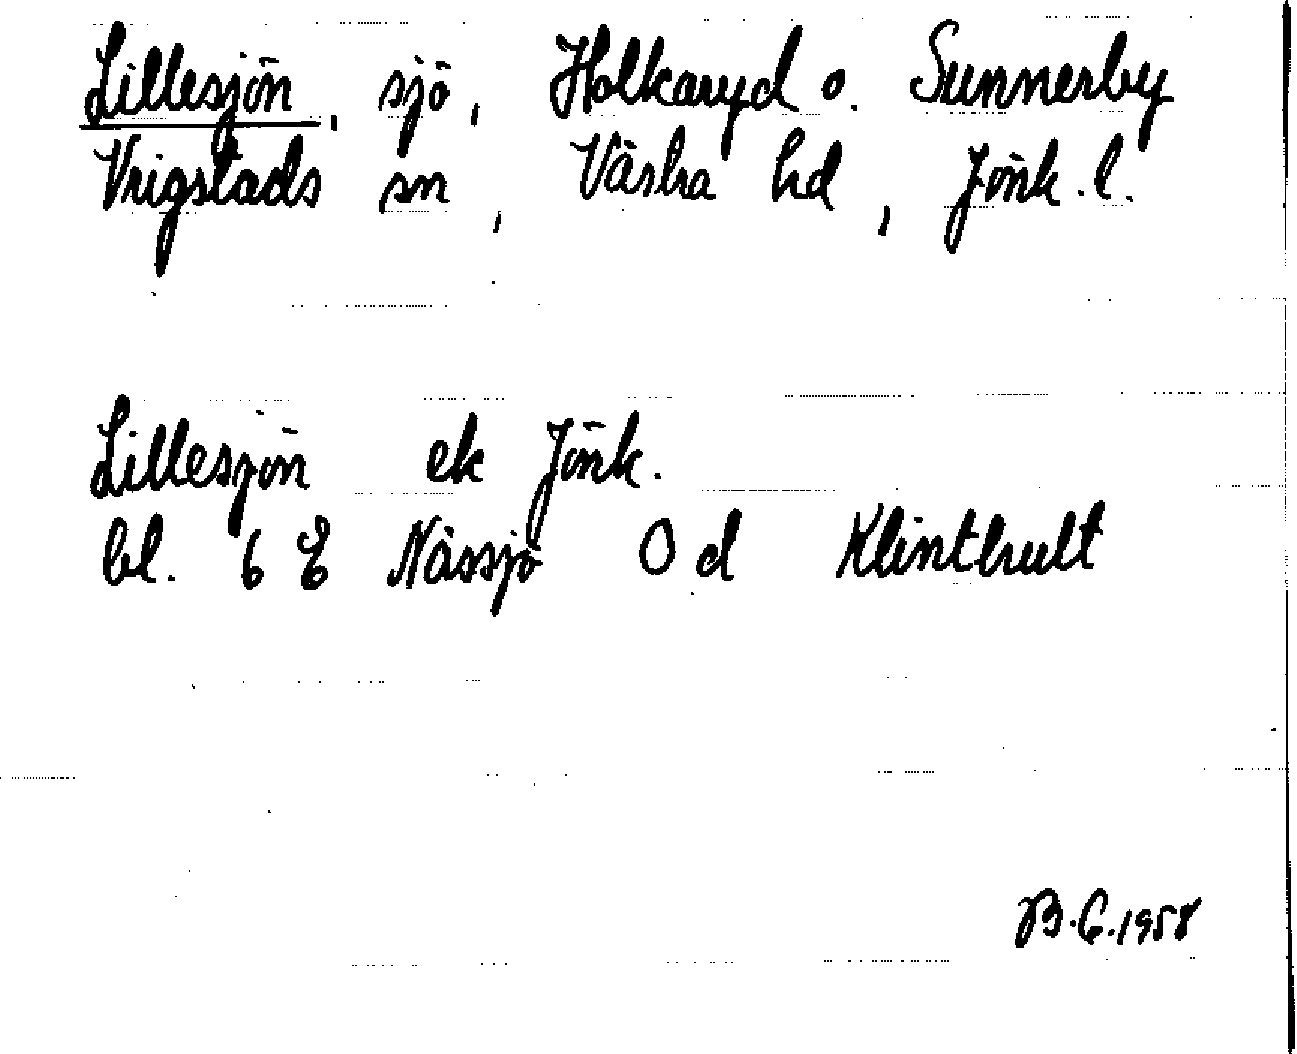 Lillesjön, sjö, Holkaryd o. Sunnerby
Vrigstads sn, Västra hd, Jönk. l.
Lillesjön ek Jönk.
bl. 6 E Nässjö 0 d Klinthult
B.G. 1958